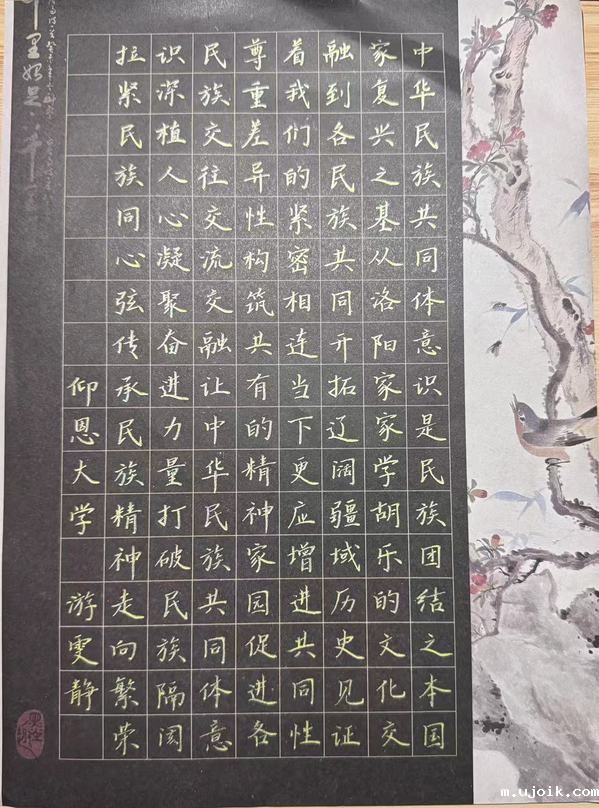 中华民族共同体意识是民族团结之本国
家复兴之基从洛阳家家学胡乐的文化交
融到各民族共同开拓辽阔疆域历史见证
着我们的紧密相连当下更应增进共同性
尊重差异性构筑共有的精神家园促进各
民族交往交流交融让中华民族共同体意
识深植人心凝聚奋进力量打破民族隔阂
拉紧民族同心弦传承民族精神走向繁荣
仰恩大学 游雯静
m.ujoik.com